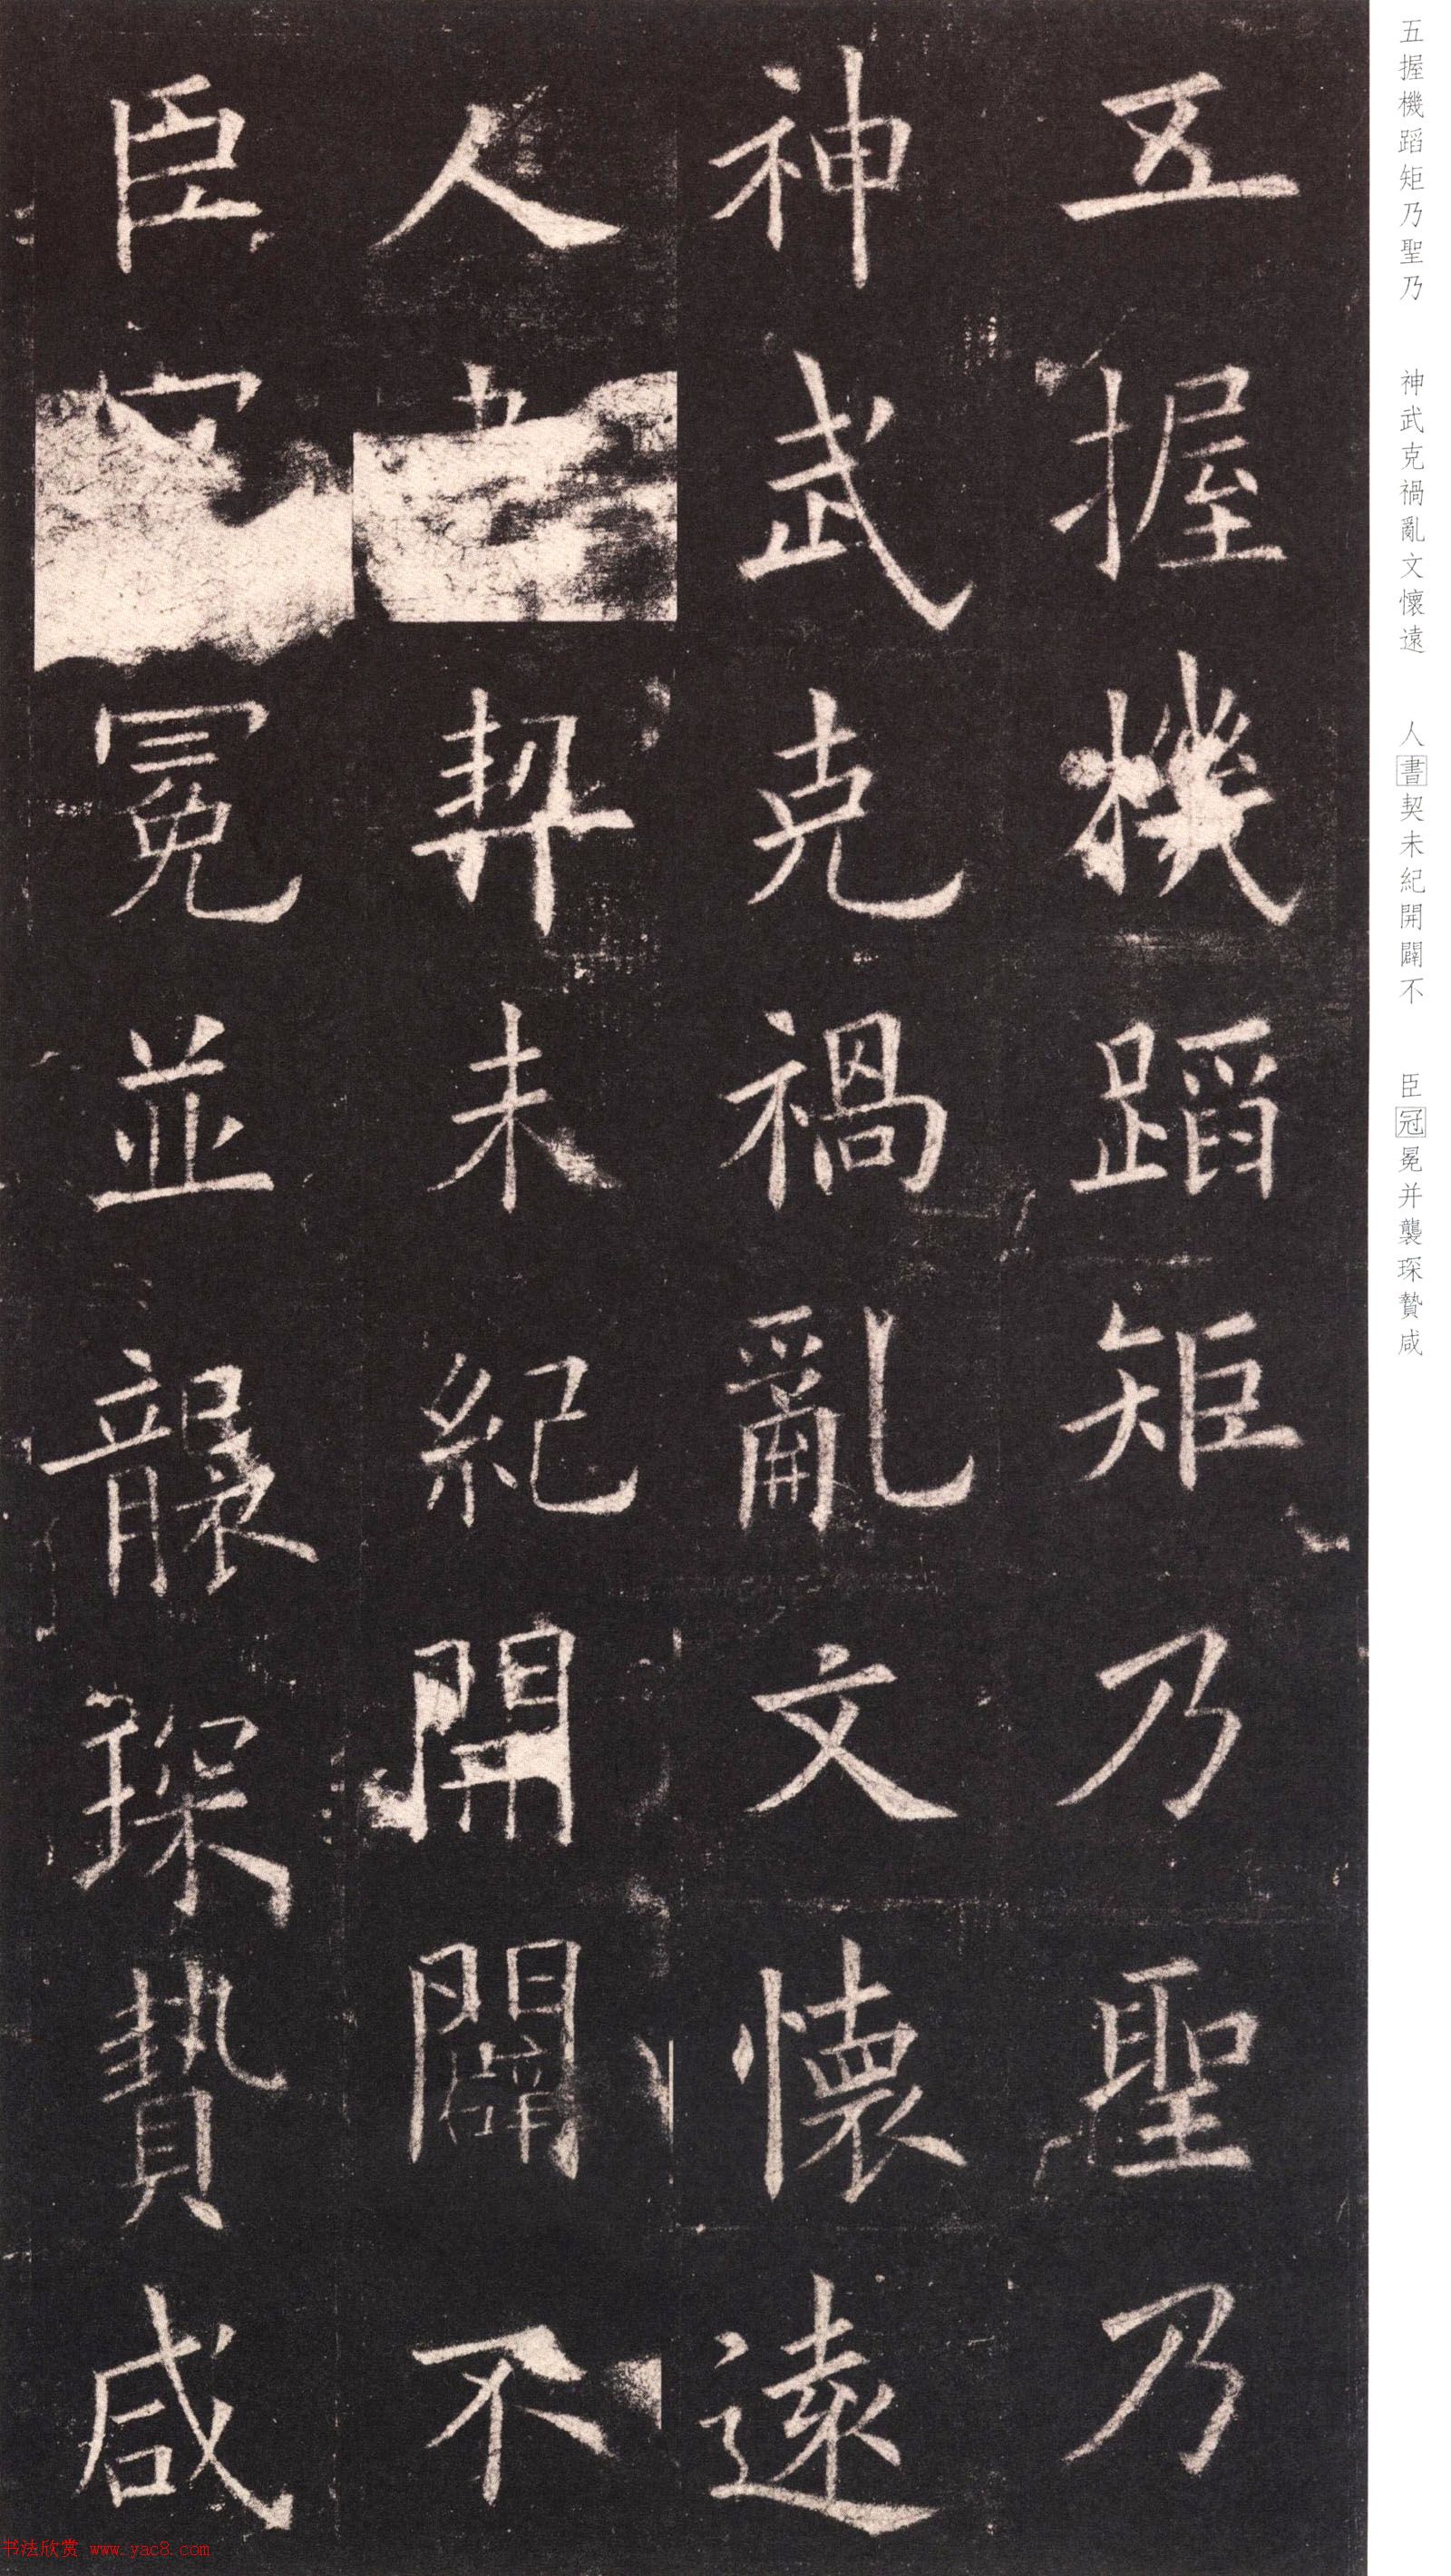 五握機蹈矩乃聖乃
神武克禍亂文懷遠
人書契未紀開闢不
臣冠冕並襲琛贄咸
五握機蹈矩乃聖乃
神武克禍亂文懷遠
人書契未紀開闢不
臣冠冕并襲琛贄咸
书法欣赏 www.yac8.com